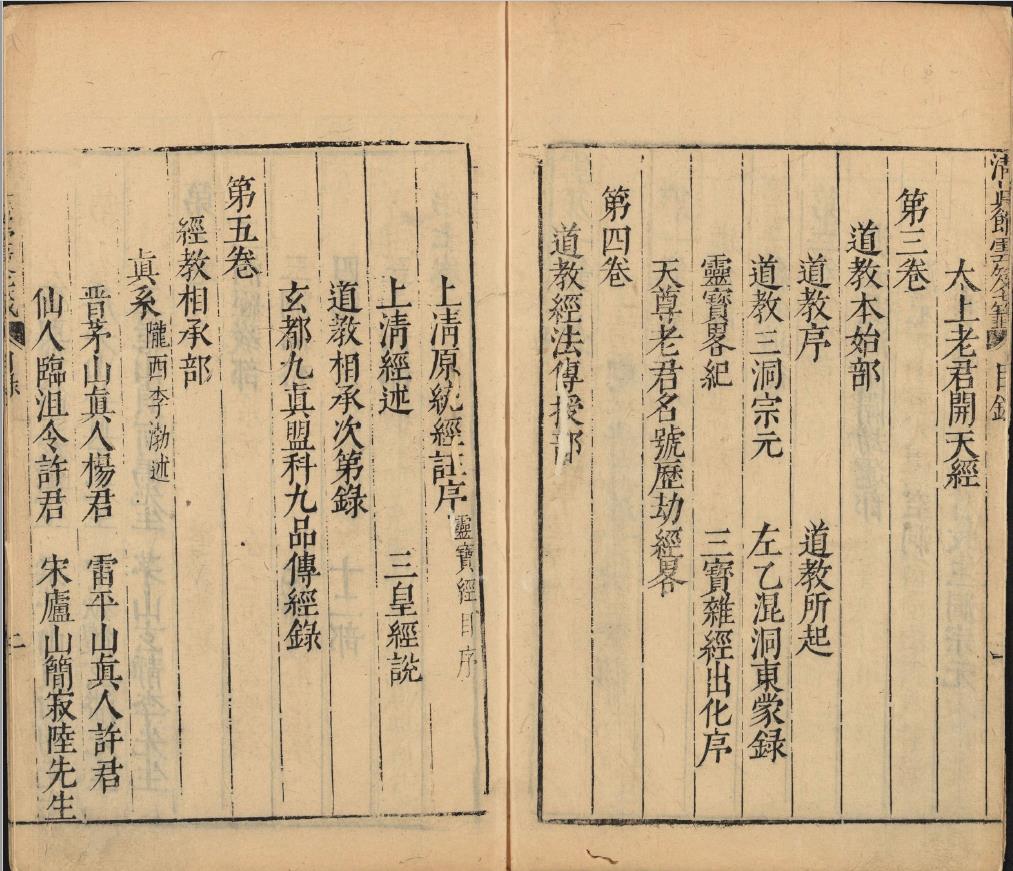 清真館雲笈七籤 目錄
太上老君開天經
第三卷
道教本始部
道教序 道教所起
道教三洞宗元 左乙混洞東蒙録
靈寶畧紀 三寶雜經出化序
天尊老君名號歷劫經畧
第四卷
道教經法傳授部
上清原統經註序 靈寶經目序
上清經述 三皇經說
道教相承次第錄
玄都九眞盟科九品傳經錄
第五卷
經教相承部
眞系 隴西李渤述
晋茅山眞人楊君 雷平山眞人許君
仙人臨沮令許君 宋廬山簡寂陸先生
目錄 二